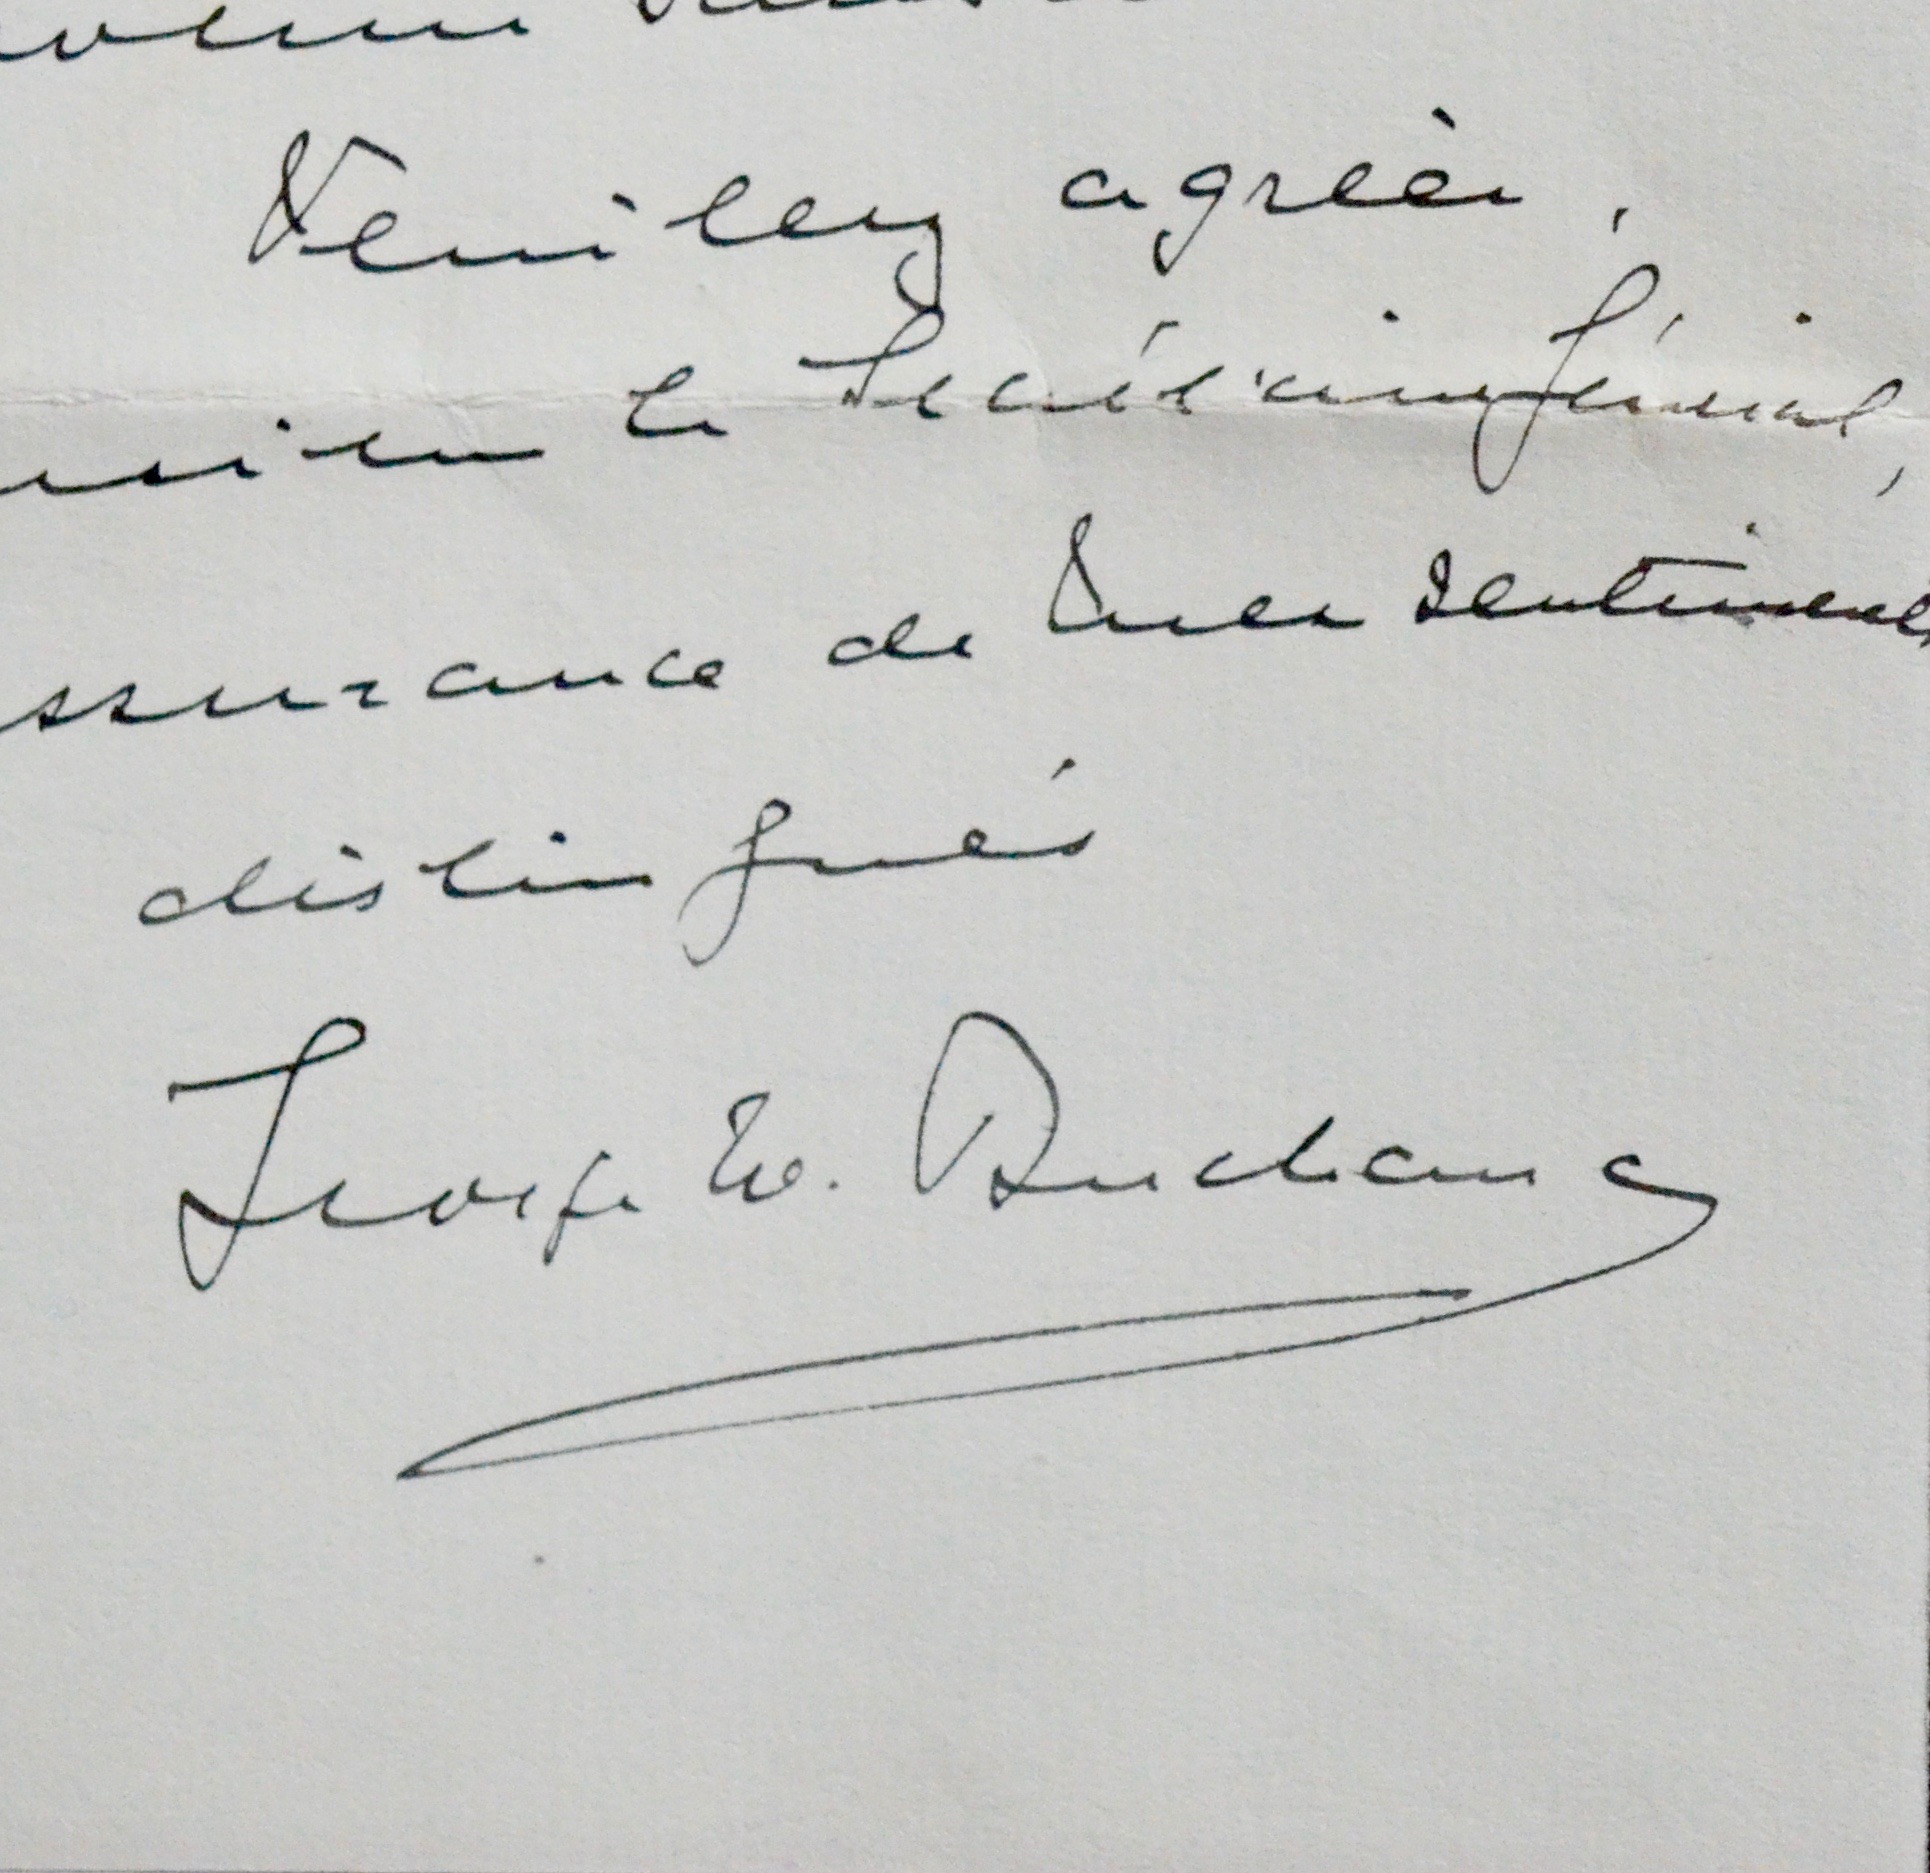 Veuillez agréer,
le Secrétaire Général,
ssurance de mes sentiments
distingués
George W. Buchanan